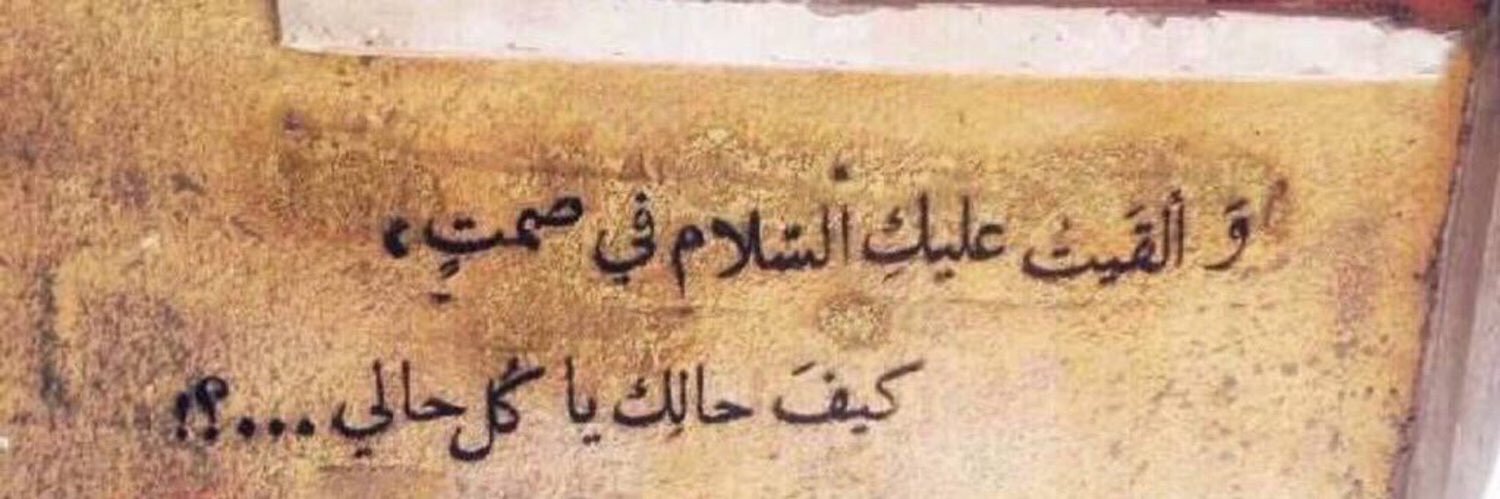 وَ ألقَيتُ عليكِ السّلام في صمتٍ،
كيفَ حالِك يا كُل حالي ...؟!